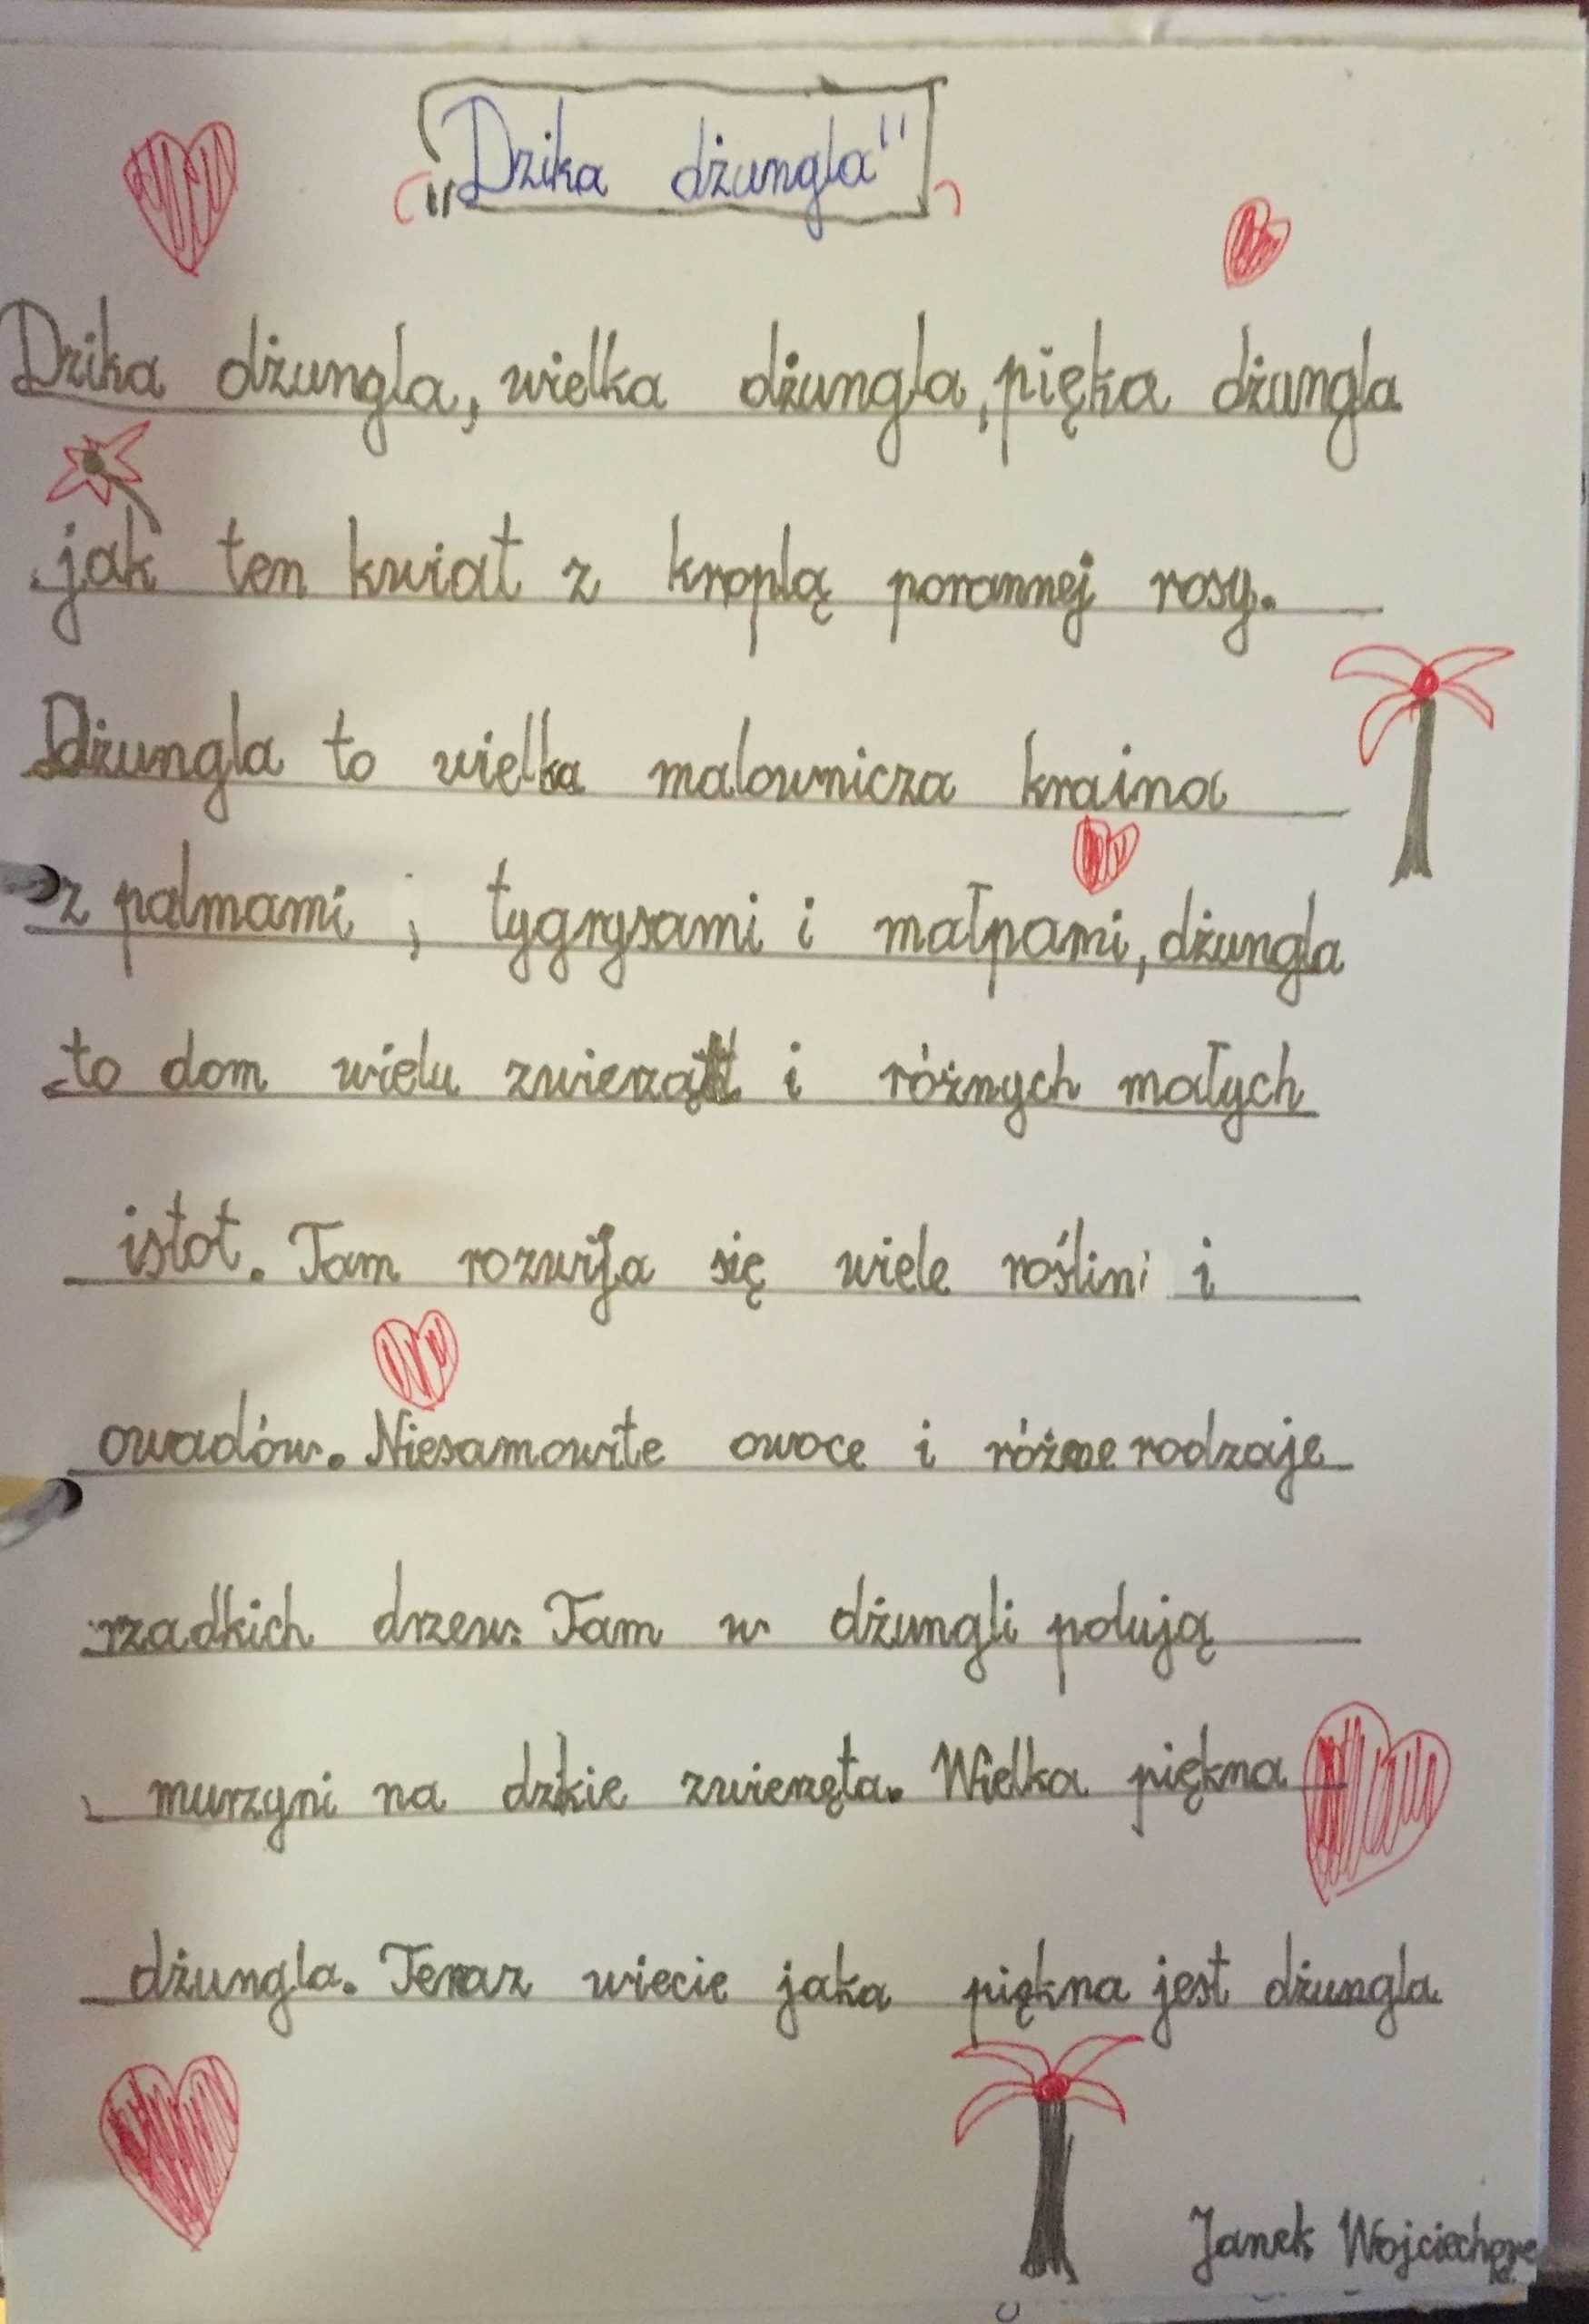 „Dzika dżungla"
Dzika dżungla, wielka dżungla, pięka dżungla
jak ten kwiat z kroplą porannej rosy.
Dżungla to wielka malownicza kraina
z palmami , tygrysami i małpami, dżungla
to dom wielu zwierząt i różnych małych
istot. Tam rozwija się wiele roślini i
owadów. Niesamowite owoce i różne rodzaje
rzadkich drzew. Tam w dżungli polują
murzyni na dzkie zwierzęta. Wielka piękna
dżungla. Teraz wiecie jaka piękna jest dżungla
Janek